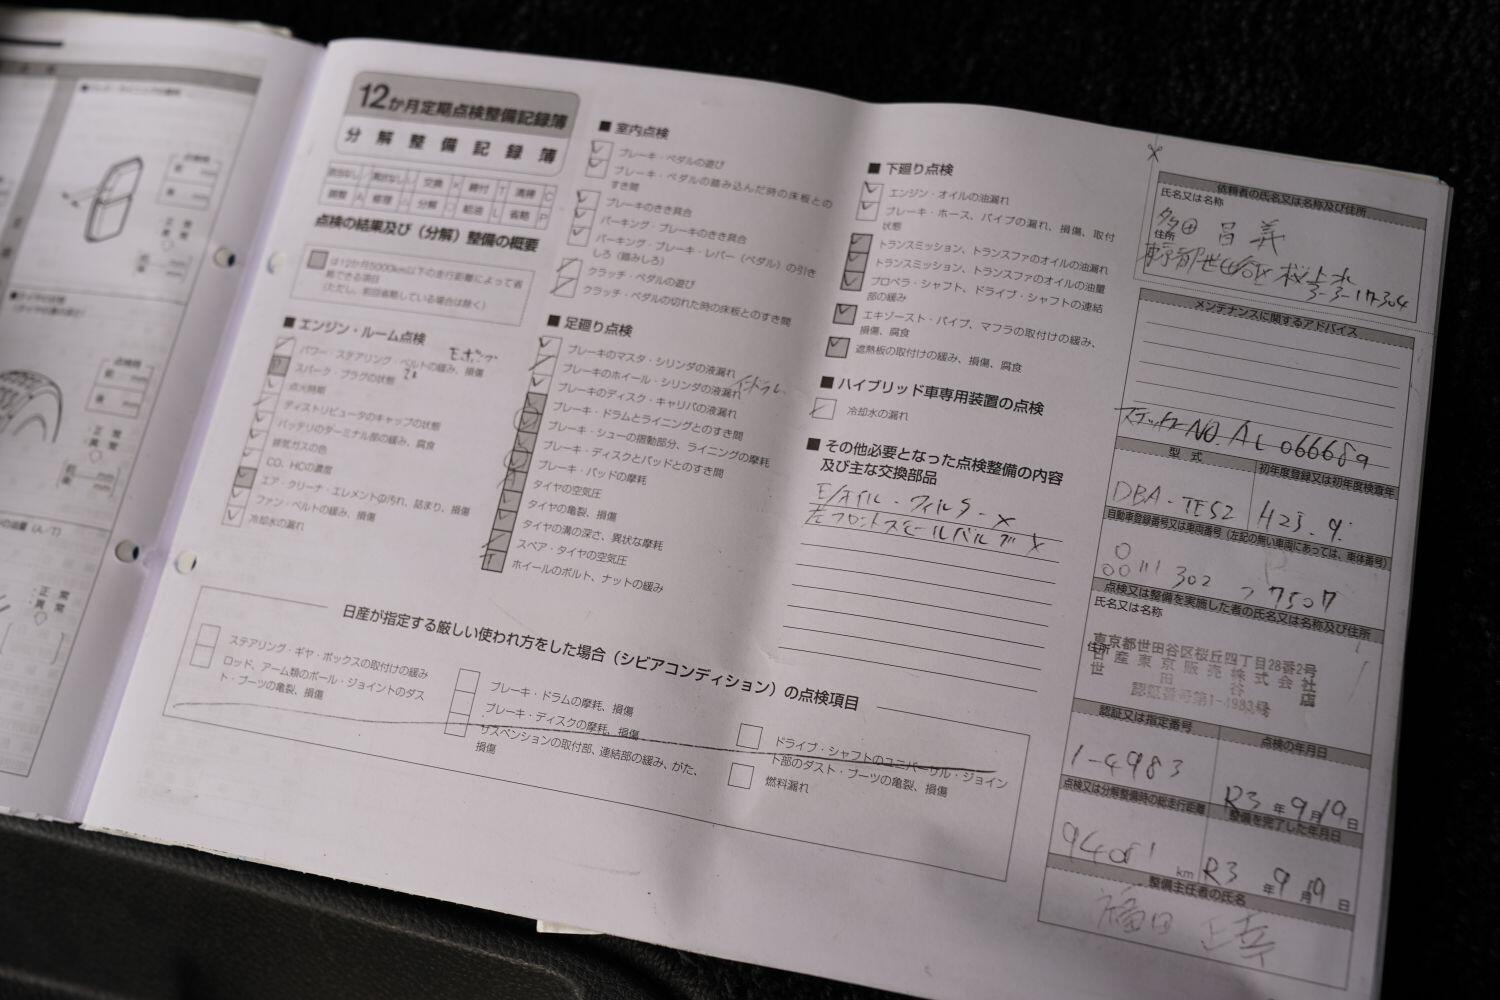 12か月定期点検整備記録簿
分解整備記録簿
交換 × 締付 T 清掃 C
調整 A 修理 分解 給油 L 省略 P
点検の結果及び（分解）整備の概要
は12か月5000km以下の走行距離によって省
略できる項目
（ただし、前回省略している場合は除く）
■ エンジン・ルーム点検
パワー・ステアリング・ベルトの緩み、損傷
スパーク・プラグの状態
点火時期
ディストリビュータのキャップの状態
バッテリのターミナル部の緩み、腐食
排気ガスの色
CO、HCの濃度
エア・クリーナ・エレメントの汚れ、詰まり、損傷
ファン・ベルトの緩み、損傷
冷却水の漏れ
■ 室内点検
ブレーキ・ペダルの遊び
ブレーキ・ペダルの踏み込んだ時の床板との
すき間
ブレーキのきき具合
パーキング・ブレーキのきき具合
パーキング・ブレーキ・レバー（ペダル）の引き
しろ（踏みしろ）
クラッチ・ペダルの遊び
クラッチ・ペダルの切れた時の床板とのすき間
■ 足廻り点検
ブレーキのマスタ・シリンダの液漏れ
ブレーキのホイール・シリンダの液漏れ
ブレーキのディスク・キャリパの液漏れ
ブレーキ・ドラムとライニングとのすき間
ブレーキ・シューの摺動部分、ライニングの摩耗
ブレーキ・ディスクとパッドとのすき間
ブレーキ・パッドの摩耗
タイヤの空気圧
タイヤの亀裂、損傷
タイヤの溝の深さ、異状な摩耗
スペア・タイヤの空気圧
ホイールのボルト、ナットの緩み
■ 下廻り点検
エンジン・オイルの油漏れ
ブレーキ・ホース、パイプの漏れ、損傷、取付
状態
トランスミッション、トランスファのオイルの油漏れ
トランスミッション、トランスファのオイルの油量
プロペラ・シャフト、ドライブ・シャフトの連結
部の緩み
エキゾースト・パイプ、マフラの取付けの緩み、
損傷、腐食
遮熱板の取付けの緩み、損傷、腐食
■ ハイブリッド車専用装置の点検
冷却水の漏れ
■ その他必要となった点検整備の内容
及び主な交換部品
E/オイル・フィルター ×
左フロントスモールバルブ ×
日産が指定する厳しい使われ方をした場合（シビアコンディション）の点検項目
ステアリング・ギヤ・ボックスの取付けの緩み
ロッド、アーム類のボール・ジョイントのダス
ト・ブーツの亀裂、損傷
ブレーキ・ドラムの摩耗、損傷
ブレーキ・ディスクの摩耗、損傷
サスペンションの取付部、連結部の緩み、がた、
損傷
ドライブ・シャフトのユニバーサル・ジョイン
ト部のダスト・ブーツの亀裂、損傷
燃料漏れ
依頼者の氏名又は名称及び住所
氏名又は名称
多田 昌義
住所
東京都世田谷区桜上水
3-3-17-304
メンテナンスに関するアドバイス
ステッカーNO. AL 066689
型式
初年度登録又は初年度検査年
DBA-TE52
H23. 9.
自動車登録番号又は車両番号（左記の無い車両にあっては、車体番号）
302 つ 7507
点検又は整備を実施した者の氏名又は名称及び住所
氏名又は名称
東京都世田谷区桜丘四丁目28番2号
住所
日産東京販売株式会社
世田谷店
認証番号第1-4983号
認証又は指定番号
点検の年月日
1-4983
R3 年 9 月 19 日
点検又は分解整備時の総走行距離
整備を完了した年月日
km
R3 年 9 月 19 日
整備主任者の氏名